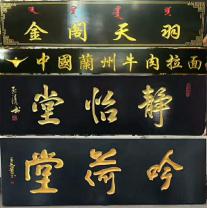 金阁天羽
中國蘭州牛肉拉面
堂怡静
堂荷吟